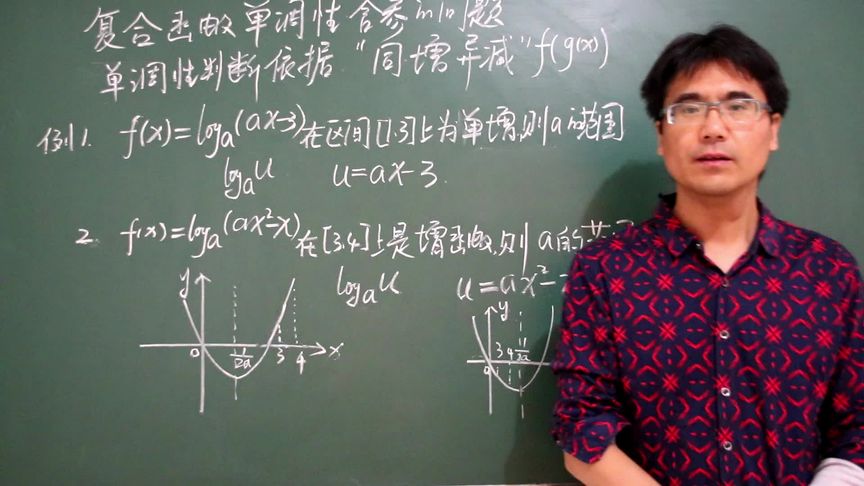 复合函数单调性含参的问题
单调性判断依据 "同增异减" f(g(x))
例1. f(x)=logₐ(ax-3)在区间[1,3]上为单增,则a的范围
logₐu u=ax-3
2. f(x)=logₐ(ax²-x)在[3,4]上是增函数,则a的范
logₐu u=ax²-
y
0 1/2a 3 4 x
y
0 3 4 1/2a